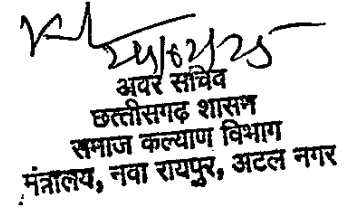 24/02/25
अवर सचिव
छत्तीसगढ़ शासन
समाज कल्याण विभाग
मंत्रालय, नवा रायपुर, अटल नगर